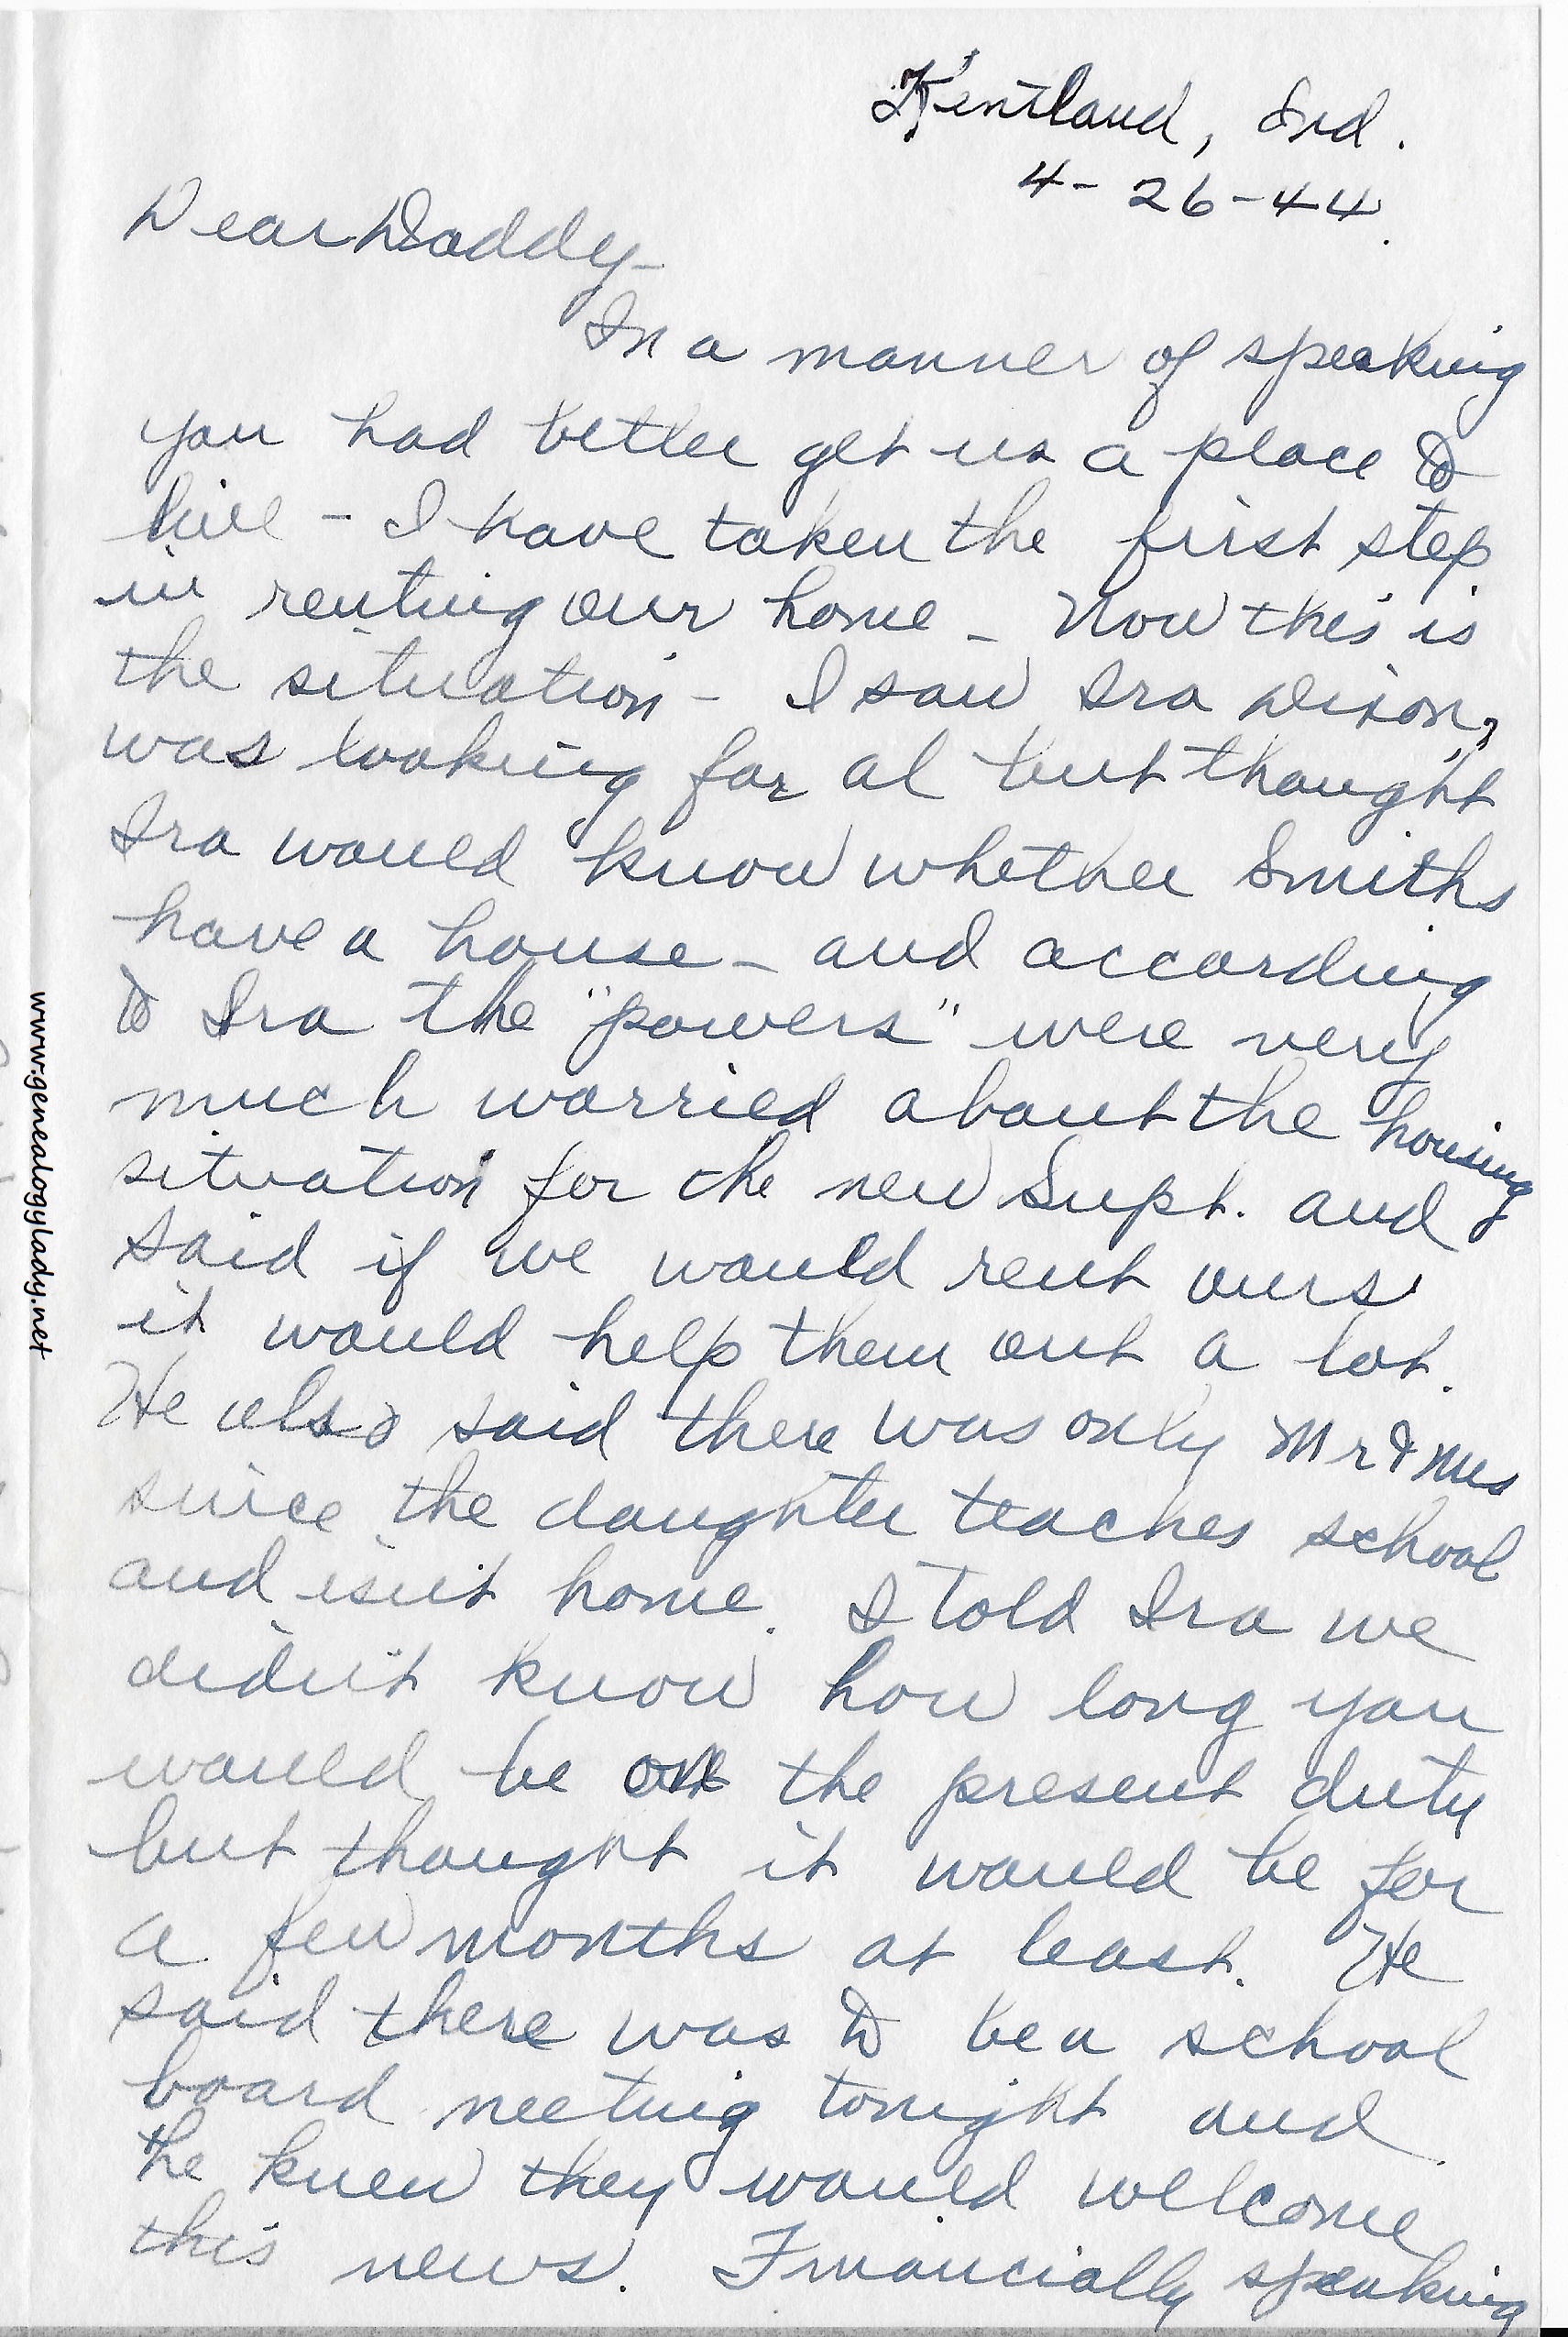 Kentland, Ind.
4-26-44.
Dear Daddy-
In a manner of speaking
you had better get us a place to
live - I have taken the first step
in renting our home - Now this is
the situation - I saw Ira Dixon,
was looking for Al but thought
Ira would know whether Smiths
have a house - and according
to Ira the "powers" were very
much worried about the housing
situation for the new Supt. and
said if we would rent ours
it would help them out a lot.
He also said there was only Mr & Mrs
since the daughter teaches school
and isn't home. I told Ira we
didn't know how long you
would be on the present duty
but thought it would be for
a few months at least. He
said there was to be a school
board meeting tonight and
he knew they would welcome
this news. Financially speaking
www.genealogylady.net